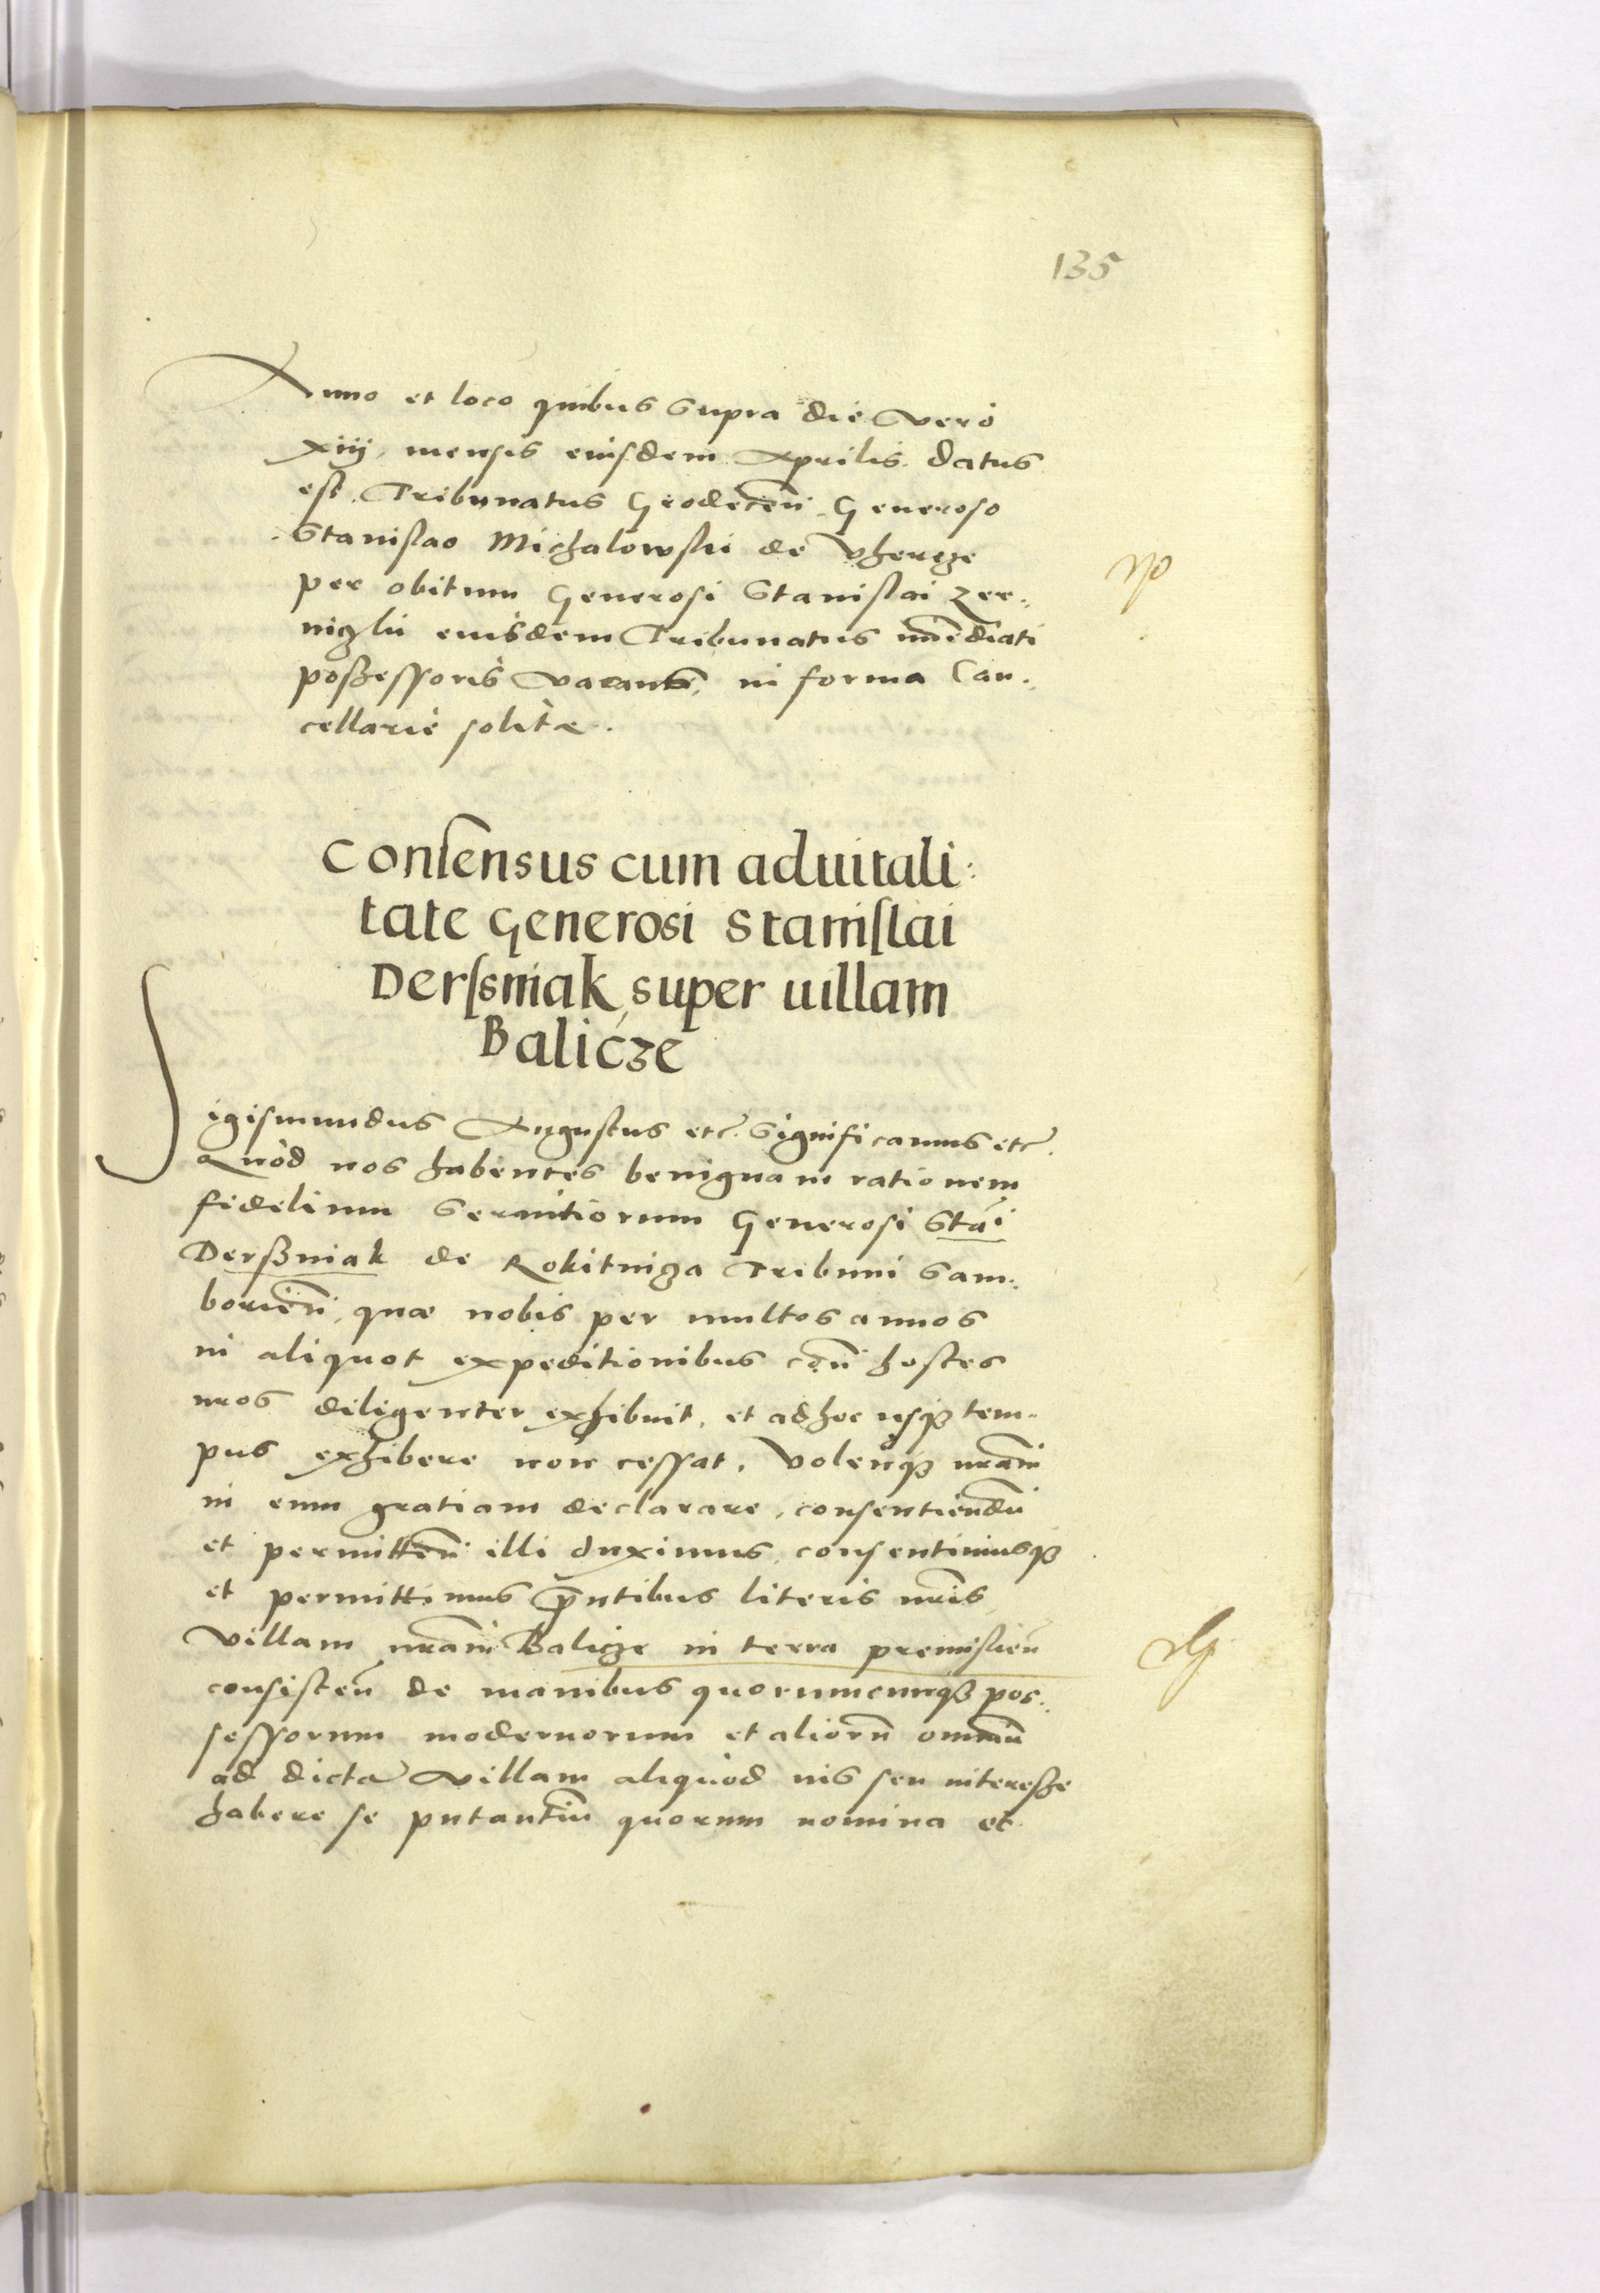 135
Anno et loco quibus supra die vero
xiij, mensis eiusdem Aprilis. Datus
est. Tribunatus Grodeceñ. Generoso
Stanislao Michalowskii de Uhercze
per obitum Generosi Stanislai Zer-
niczkii eiusdem Tribunatus imediati
possessoris vacans, in forma Can-
cellarie solitæ.
Consensus cum aduitali-
tate Generosi Stanislai
Derssniak super uillam
Balicze
Sigismundus Augustus etc. Significamus etc.
Quòd nos habentes benignam rationem
fidelium seruitiorum Generosi Stãi
Dersniak de Rokitnicza Tribuni Sam-
borieñ, quæ nobis per multos annos
in aliquot expeditionibus coñ hostes
nros diligenter exhibuit, et adhoc usq; tem-
pus exhibere non cessat. Volenq; nram
in eum gratiam declarare, consentiendũ
et permitteñ illi duximus, consentimusq;
et permittimus pñtibus literis nris,
Villam nram Balicze in terra premislieñ
consisteñ de manibus quorumcunq; pos-
sessorum modernorum et aliorũ omniũ
ad dictã villam aliquod ius seu interesse
habere se putantiũ quorum nomina et